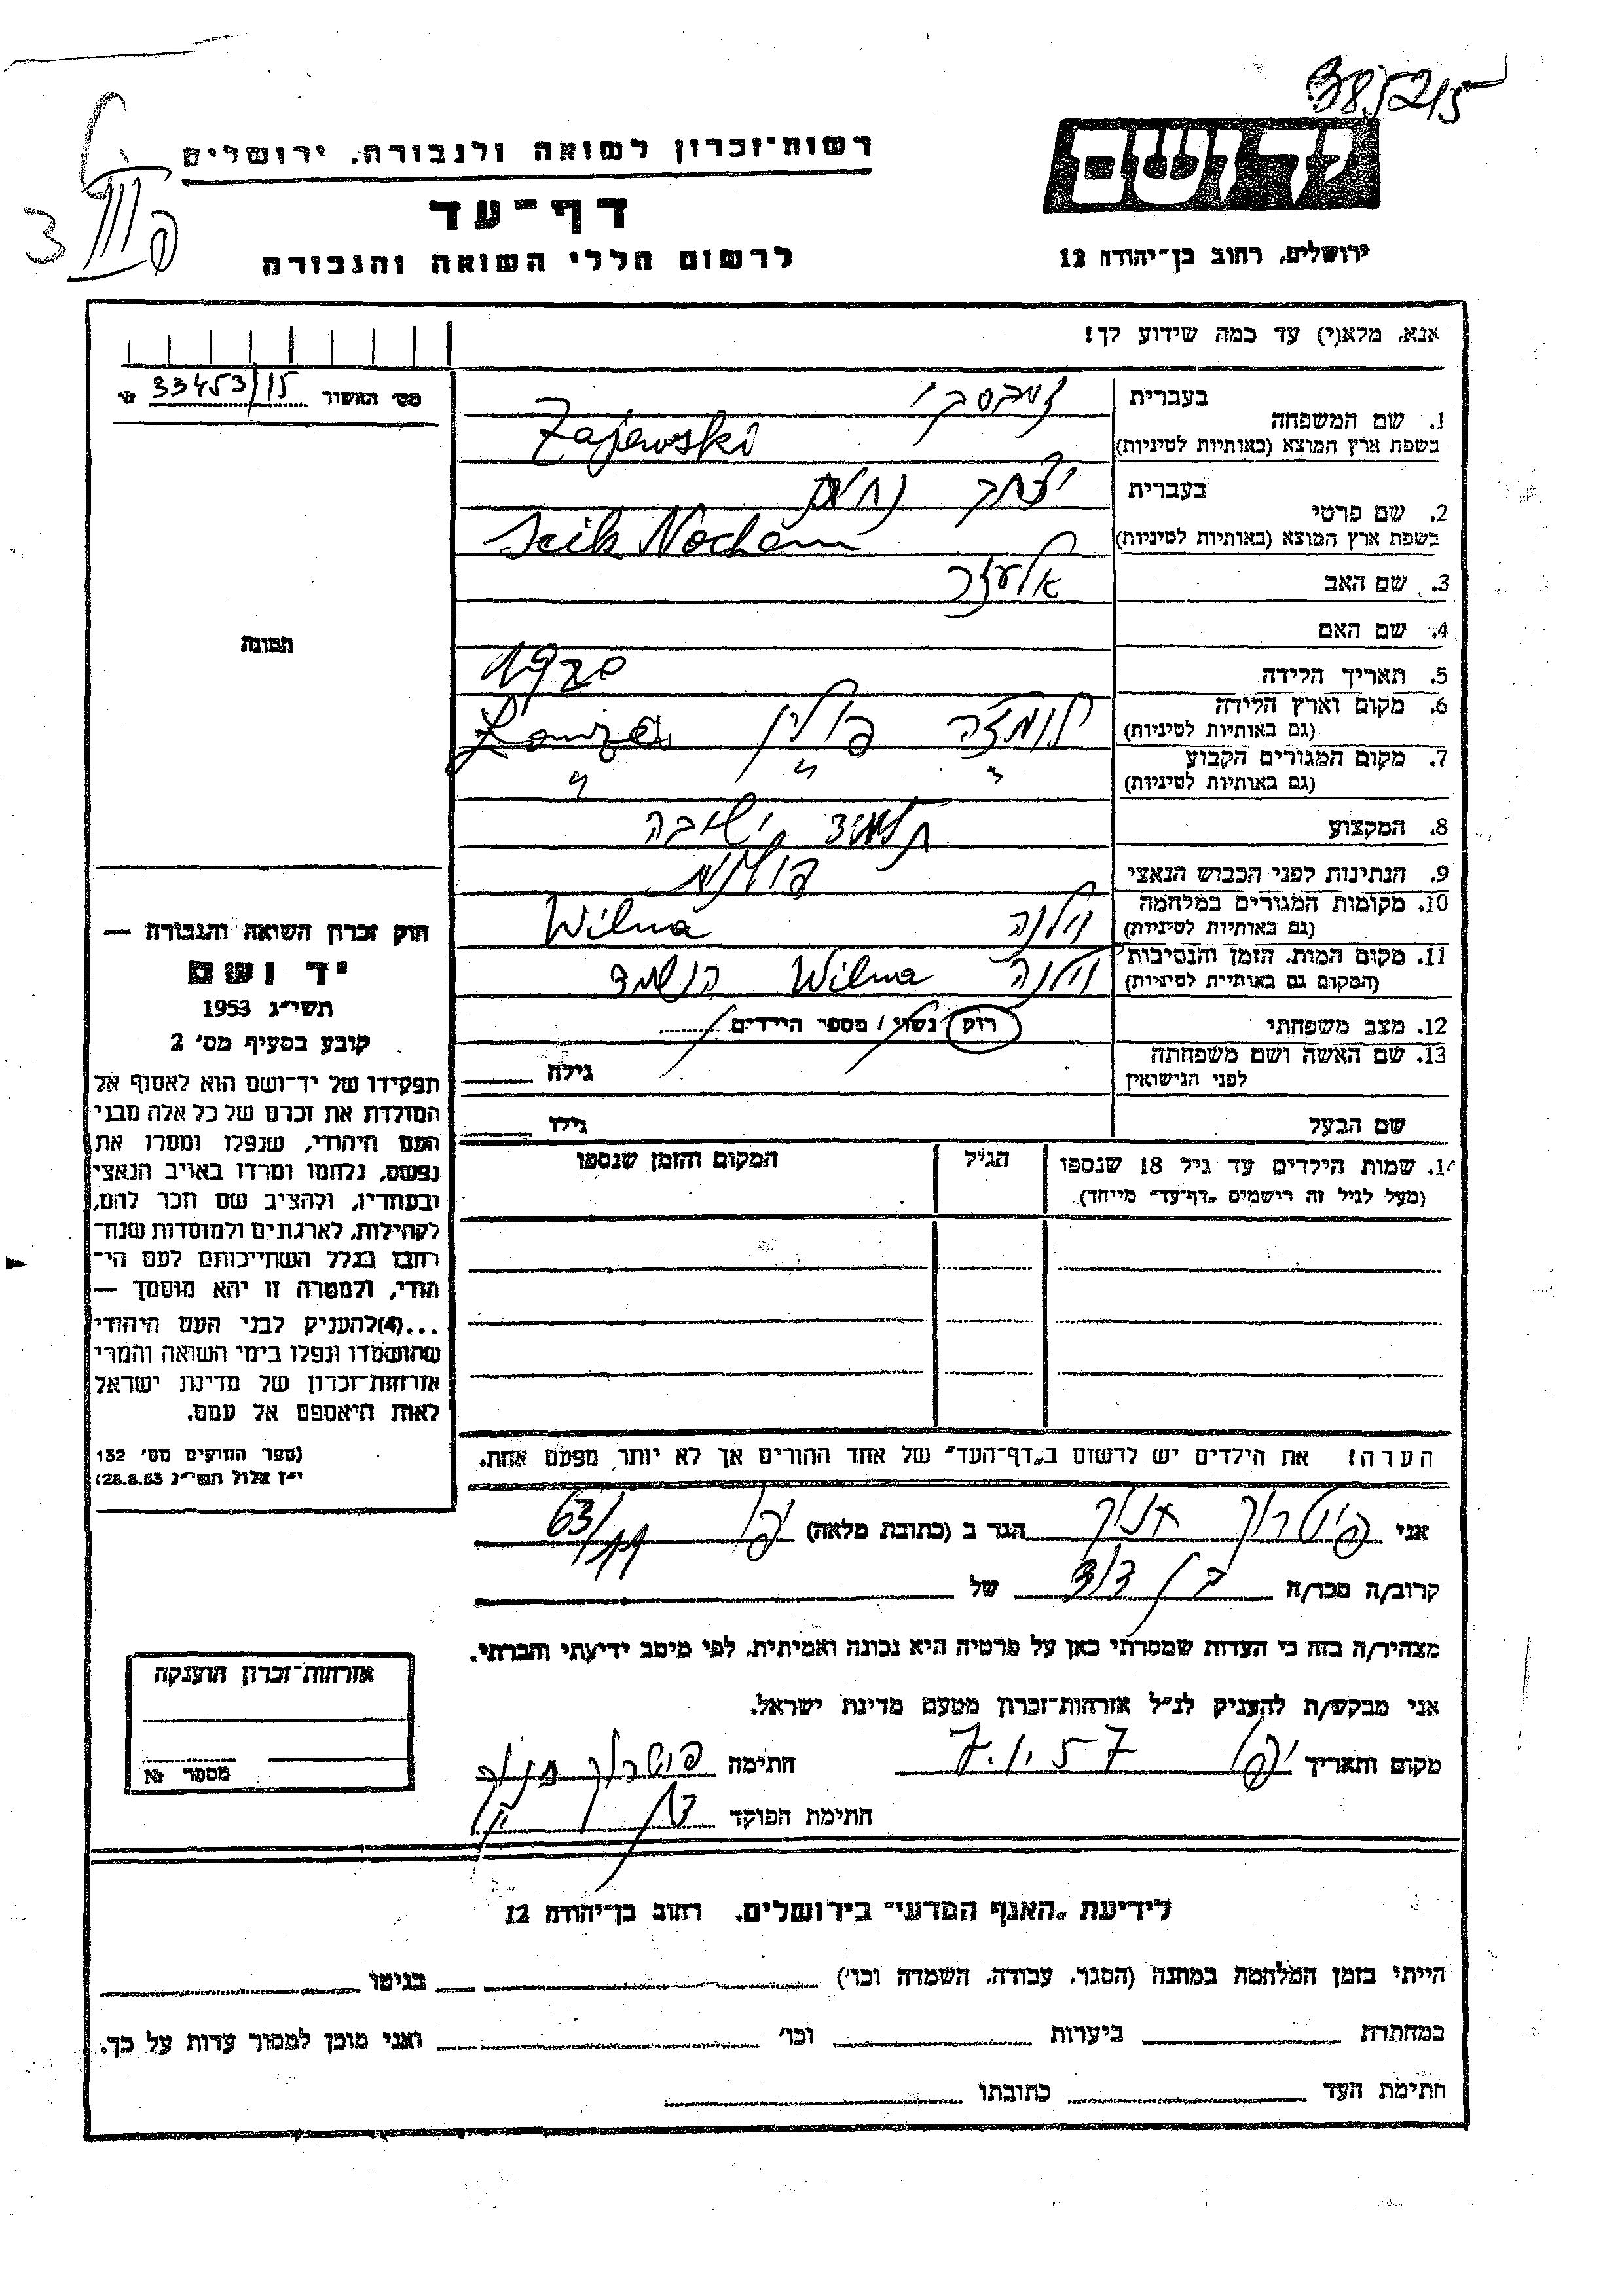 38/215
רשות־זכרון לשואה ולגבורה, ירושלים
יד ושם
דף־עד
לרשום חללי השואה והגבורה
ירושלים, רחוב בן־יהודה 12
אנא, מלא(י) עד כמה שידוע לך!
מס׳ האשור 33453/15
בעברית
1. שם המשפחה
בשפת ארץ המוצא (באותיות לטיניות) Zajewski
בעברית יצחק נחום
2. שם פרטי
בשפת ארץ המוצא (באותיות לטיניות) Icik Nochem
3. שם האב אלעזר
4. שם האם
תמונה
5. תאריך הלידה 1920
6. מקום וארץ הלידה לומזה פולין Lomza
(גם באותיות לטיניות)
7. מקום המגורים הקבוע " " "
(גם באותיות לטיניות)
8. המקצוע תלמיד ישיבה
9. הנתינות לפני הכבוש הנאצי פולנית
10. מקומות המגורים במלחמה וילנה Wilna
(גם באותיות לטיניות)
11. מקום המות, הזמן והנסיבות וילנה Wilna הושמד
(המקום גם באותיית לטיניות)
12. מצב משפחתי רוק / נשוי / מספר הילדים
13. שם האשה ושם משפחתה גילה
לפני הנישואין
שם הבעל גילו
14. שמות הילדים עד גיל 18 שנספו הגיל המקום והזמן שנספו
(מעל לגיל זה רישמים „דף־עד" מייחד)
חוק זכרון השואה והגבורה —
יד ושם
תשי״ג 1953
קובע בסעיף מס׳ 2
תפקידו של יד־ושם הוא לאסוף אל
המולדת את זכרם של כל אלה מבני
העם היהודי, שנפלו ומסרו את
נפשם, נלחמו ומרדו באויב הנאצי
ובעוזריו, ולהציב שם וזכר להם,
לקהילות, לארגונים ולמוסדות שנח־
רבו בגלל השתייכותם לעם הי־
הודי, ולמטרה זו יהא מוסמך —
...(4)להעניק לבני העם היהודי
שהושמדו ונפלו בימי השואה והמרי
אזרחות־זכרון של מדינת ישראל
לאות היאספם אל עמם.
(ספר החוקים מס׳ 132
י״ז אלול תשי״ג 28.8.53)
הערה! את הילדים יש לרשום ב„דף־העד" של אחד ההורים אך לא יותר מפעם אחת.
אני הגר ב (כתובת מלאה) יפו
קרוב/ה מכר/ה בן דוד של
מצהיר/ה בזה כי העדות שמסרתי כאן על פרטיה היא נכונה ואמיתית, לפי מיטב ידיעתי והכרתי.
אני מבקש/ת להעניק לנ״ל אזרחות־זכרון מטעם מדינת ישראל.
מקום ותאריך יפו 7.1.57 חתימה
חתימת הפוקד
אזרחות־זכרון הוענקה
מספר №
לידיעת „האגף המדעי" בירושלים, רחוב בן־יהודה 12
הייתי בזמן המלחמה במחנה (הסגר, עבודה, השמדה וכו׳) בגיטו
במחתרת ביערות וכו׳ ואני מוכן למסור עדות על כך.
חתימת העד כתובתו